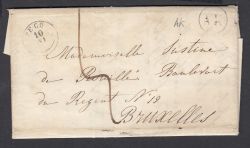 10
AK
Mademoiselle Justine
de Boulevart
du Regent N° 19
Bruxelles